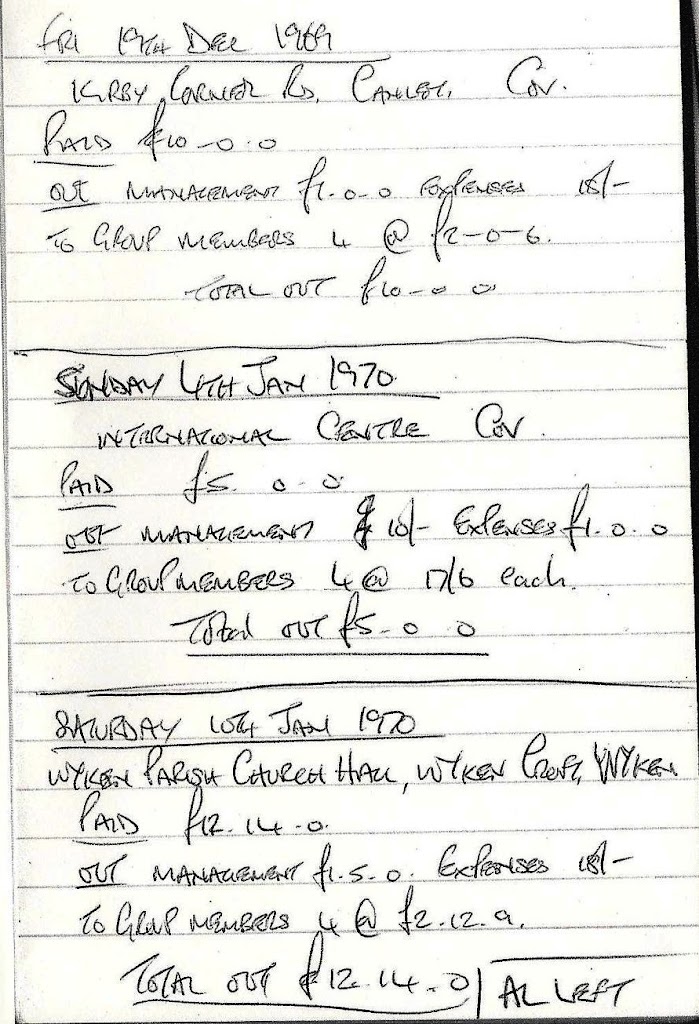 FRI 19TH DEC 1969
KIRBY CORNER RD, CANLEY, COV.
PAID £10-0.0
OUT MANAGEMENT £1.0.0 EXPENSES 18/-
TO GROUP MEMBERS 4 @ £2-0-6.
TOTAL OUT £10-0 0
SUNDAY 4TH JAN 1970
INTERNATIONAL CENTRE COV.
PAID £5. 0.0
OUT MANAGEMENT 10/- EXPENSES £1.0.0
TO GROUP MEMBERS 4 @ 17/6 each.
Total OUT £5.0 0
SATURDAY 10TH JAN 1970
WYKEN PARISH CHURCH HALL, WYKEN CROFT, WYKEN
PAID £12.14.0.
OUT MANAGEMENT £1.5.0. EXPENSES 18/-
TO GROUP MEMBERS 4 @ £2.12.9.
TOTAL OUT £12.14.0 | AL LEFT